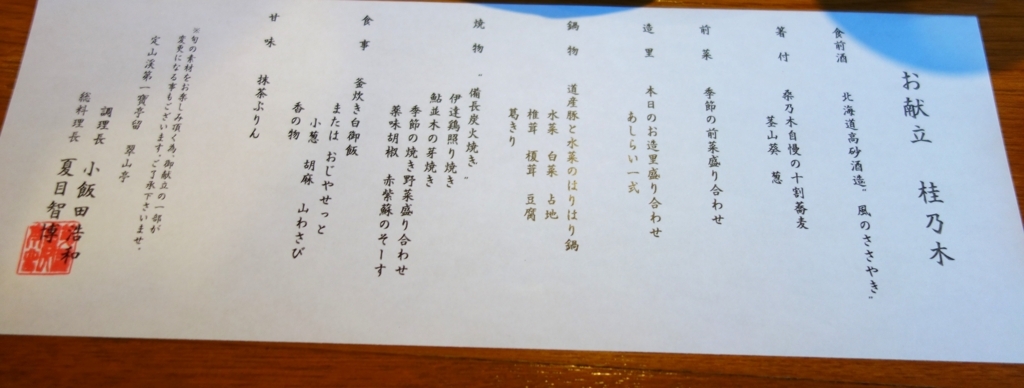 お献立　桂乃木
食前酒　北海道高砂酒造〝風のささやき〟
箸付　桑乃木自慢の十割蕎麦
茎山葵　葱
前菜　季節の前菜盛り合わせ
造里　本日のお造里盛り合わせ
あしらい一式
鍋物　道産豚と水菜のはりはり鍋
水菜　白菜　占地
椎茸　榎茸　豆腐
葛きり
焼物　〝備長炭火焼き〟
伊達鶏照り焼き
鮎並木の芽焼き
季節の焼き野菜盛り合わせ
薬味胡椒　赤紫蘇のそーす
食事　釜炊き白御飯
または　おじやせっと
小葱　胡麻　山わさび
香の物
甘味　抹茶ぷりん
※旬の素材をお楽しみ頂く為、御献立の一部が
変更になる事もございます。ご了承下さいませ。
定山渓第一寶亭留　翠山亭
調理長　小飯田浩和
総料理長　夏目智博